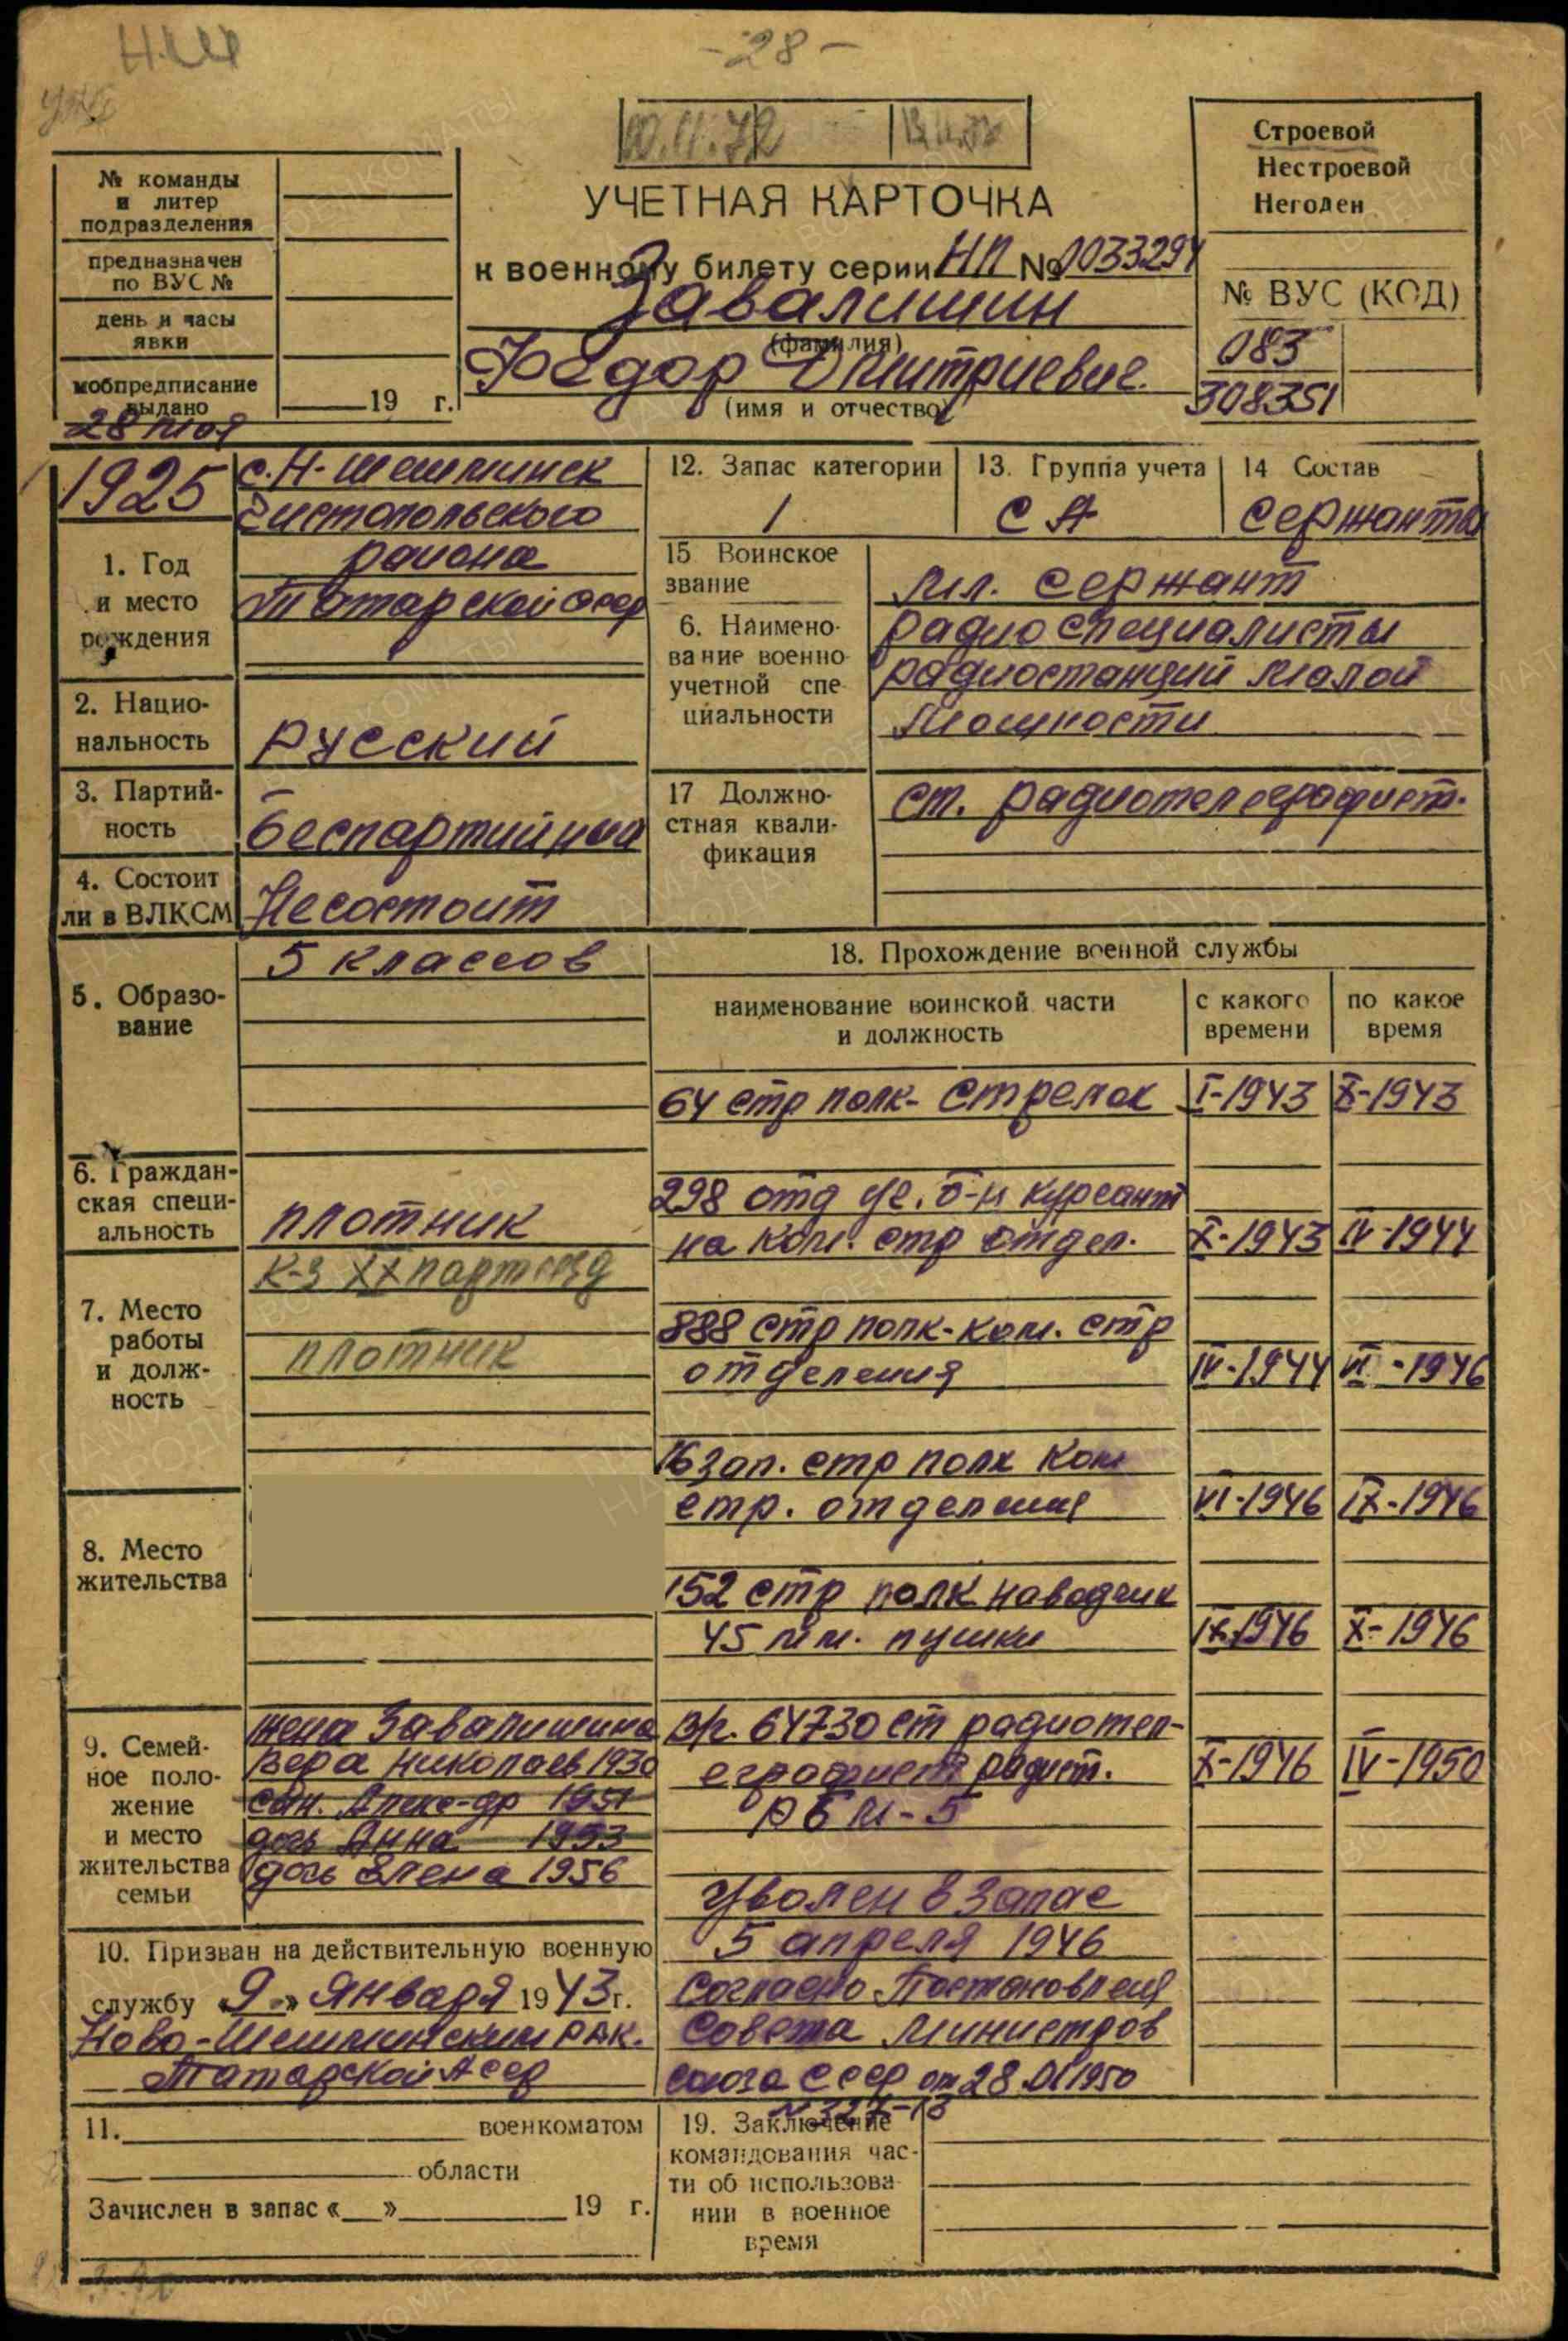 Н.Ш
- 28 -
10.11.72
УЧЕТНАЯ КАРТОЧКА
к военному билету серии НП № 0033294
Завалишин
(фамилия)
Федор Дмитриевич
(имя и отчество)
Строевой
Нестроевой
Негоден
№ ВУС (КОД)
083
308351
№ команды
и литер
подразделения
предназначен
по ВУС №
день и часы
явки
мобпредписание
выдано
19 г.
28 мая
1925
1. Год
и место
рождения
с. Н-Шешминск
Чистопольского
района
Татарской АССР
2. Нацио-
нальность
Русский
3. Партий-
ность
Беспартийный
4. Состоит
ли в ВЛКСМ
Не состоит
5. Образо-
вание
5 классов
6. Граждан-
ская специ-
альность
плотник
7. Место
работы
и долж-
ность
К-з ХХ партсезд
плотник
8. Место
жительства
9. Семей-
ное поло-
жение
и место
жительства
семьи
жена Завалишина
Вера Николаев 1930
сын. Алекс-др 1951
дочь Анна 1953
дочь Елена 1956
10. Призван на действительную военную
службу «9» Января 1943 г.
Ново-Шешминским РВК.
Татарской АССР
11. военкоматом
области
Зачислен в запас « » 19 г.
12. Запас категории
1
13. Группа учета
СА
14 Состав
сержанты
15 Воинское
звание
мл. сержант
6. Наимено-
вание военно-
учетной спе
циальности
радио специалисты
радиостанций малой
мощности
17 Должно-
стная квали-
фикация
ст. радиотелеграфист.
18. Прохождение военной службы
наименование воинской части
и должность
с какого
времени
по какое
время
64 стр полк- стрелок I-1943 X-1943
298 отд уч. б-н курсант
на ком. стр отдел. X-1943 IV-1944
888 стр полк-ком. стр
отделения IV-1944 VI-1946
16 зап. стр полк ком
стр. отделения VI-1946 IX-1946
152 стр полк наводчик
45 мм. пушки IX-1946 X-1946
в/ч. 64730 ст радиотел-
еграфист радист. X-1946 IV-1950
РБМ-5
Уволен в запас
5 апреля 1946
Согласно Постановления
Совета Министров
Союза СССР от 28.01 1950
№ 327-13
19. Заключение
командования час-
ти об использова
нии в военное
время